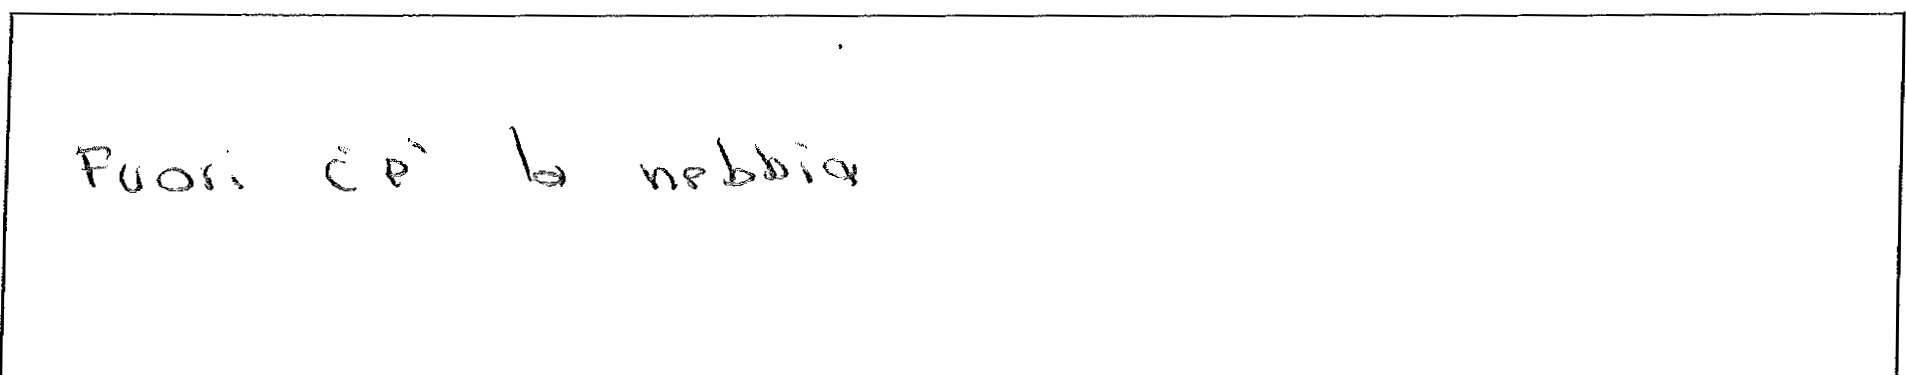 Fuori c'è la nebbia